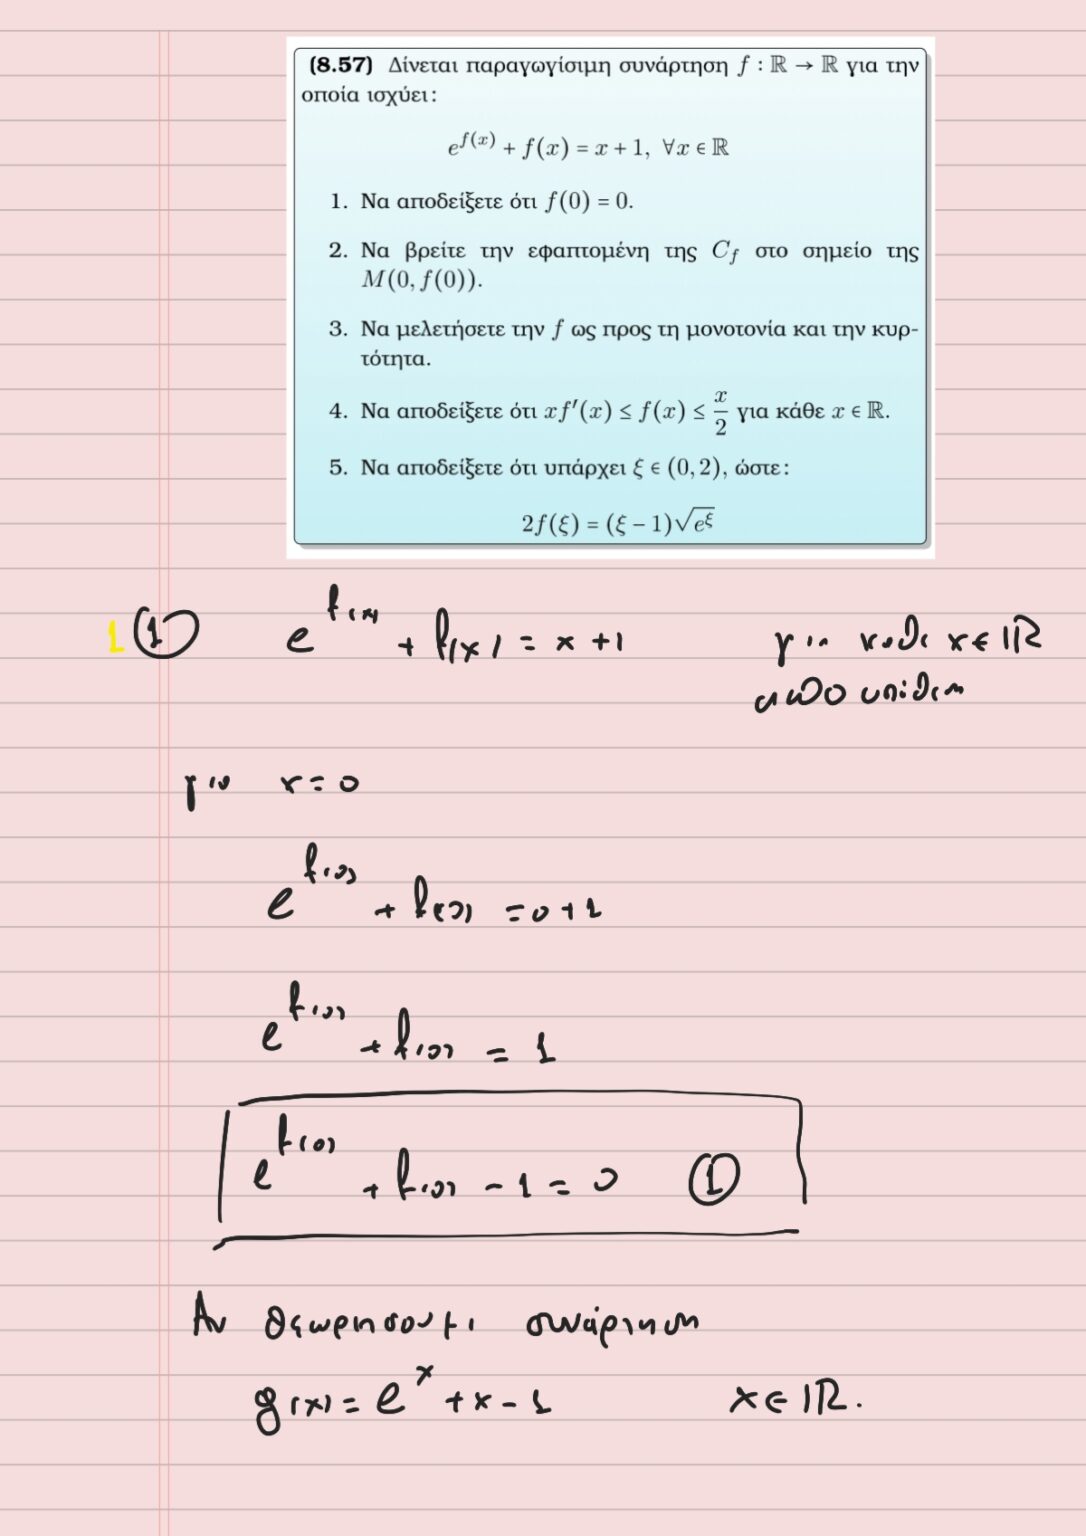 (8.57) Δίνεται παραγωγίσιμη συνάρτηση f : ℝ → ℝ για την
οποία ισχύει:
e^{f(x)} + f(x) = x + 1, ∀x ∈ ℝ
1. Να αποδείξετε ότι f(0) = 0.
2. Να βρείτε την εφαπτομένη της C_f στο σημείο της
M(0, f(0)).
3. Να μελετήσετε την f ως προς τη μονοτονία και την κυρ-
τότητα.
4. Να αποδείξετε ότι xf′(x) ≤ f(x) ≤ x/2 για κάθε x ∈ ℝ.
5. Να αποδείξετε ότι υπάρχει ξ ∈ (0, 2), ώστε:
2f(ξ) = (ξ − 1)√e^ξ
1 ① e^{f(x)} + f(x) = x + 1 για καθε x ∈ ℝ
απο υποθεση
για x = 0
e^{f(0)} + f(0) = 0 + 1
e^{f(0)} + f(0) = 1
e^{f(0)} + f(0) − 1 = 0 ①
Αν θεωρησουμε συνάρτηση
g(x) = e^x + x − 1 x ∈ ℝ.